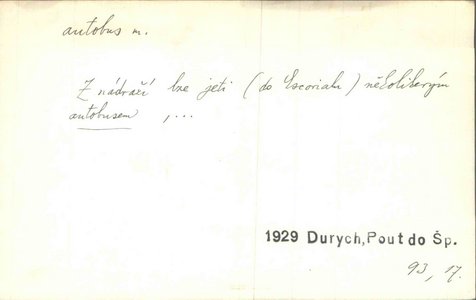 autobus m.
Z nádraží lze jeti (do Escorialu) několikerým
autobusem , ...
1929 Durych, Pout do Šp.
93, 17.